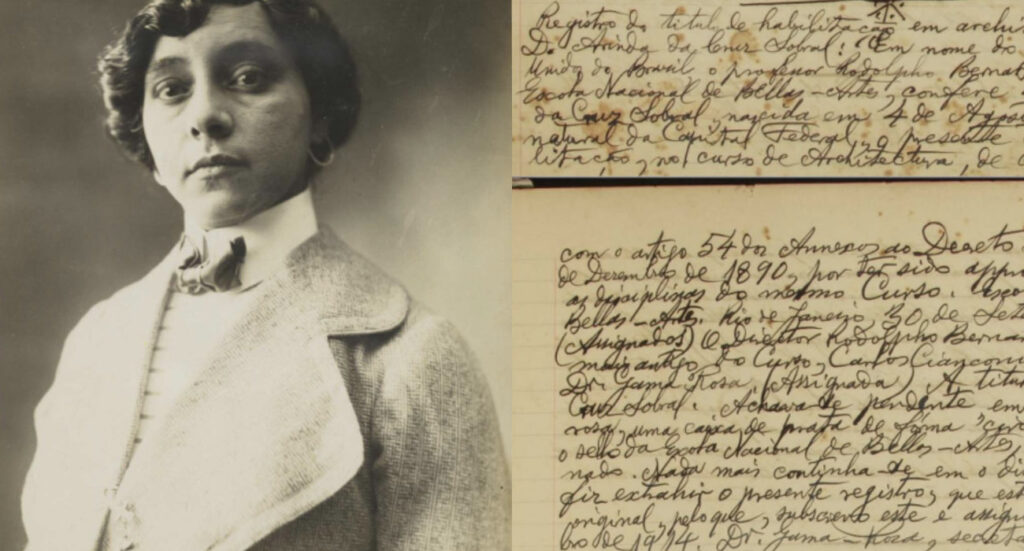 Registro do titulo de habilitação em archi
D. Arinda da Cruz Sobral: Em nome do
Unido do Brazil o professor Rodolpho Bernar
Escola Nacional de Bellas-Artes, confere
da Cruz Sobral, nascida em 4 de Agosto
natural da Capital Federal, o presente
litação, no curso de Architectura, de
com o artigo 54 dos Annexos ao Decreto
de Dezembro de 1890, por ter sido appro
as disciplinas do mesmo Curso. Esco
Bellas-Artes. Rio de Janeiro, 30 de Sete
(Assignados) O Director Rodolpho Berna
mais antigo do Curso, Carlos Cianconi
Dr. Gama Rosa. (Assignada) A titu
Cruz Sobral. Achava-se pendente em
rosa, uma caixa de prata de forma circ
o sello da Escola Nacional de Bellas-Artes
nado. Nada mais continha-se em o di
fiz extrahir o presente registro, que est
original, pelo que, subscrevo este e assign
bro de 1914. Dr. Gama-Rosa, secreta